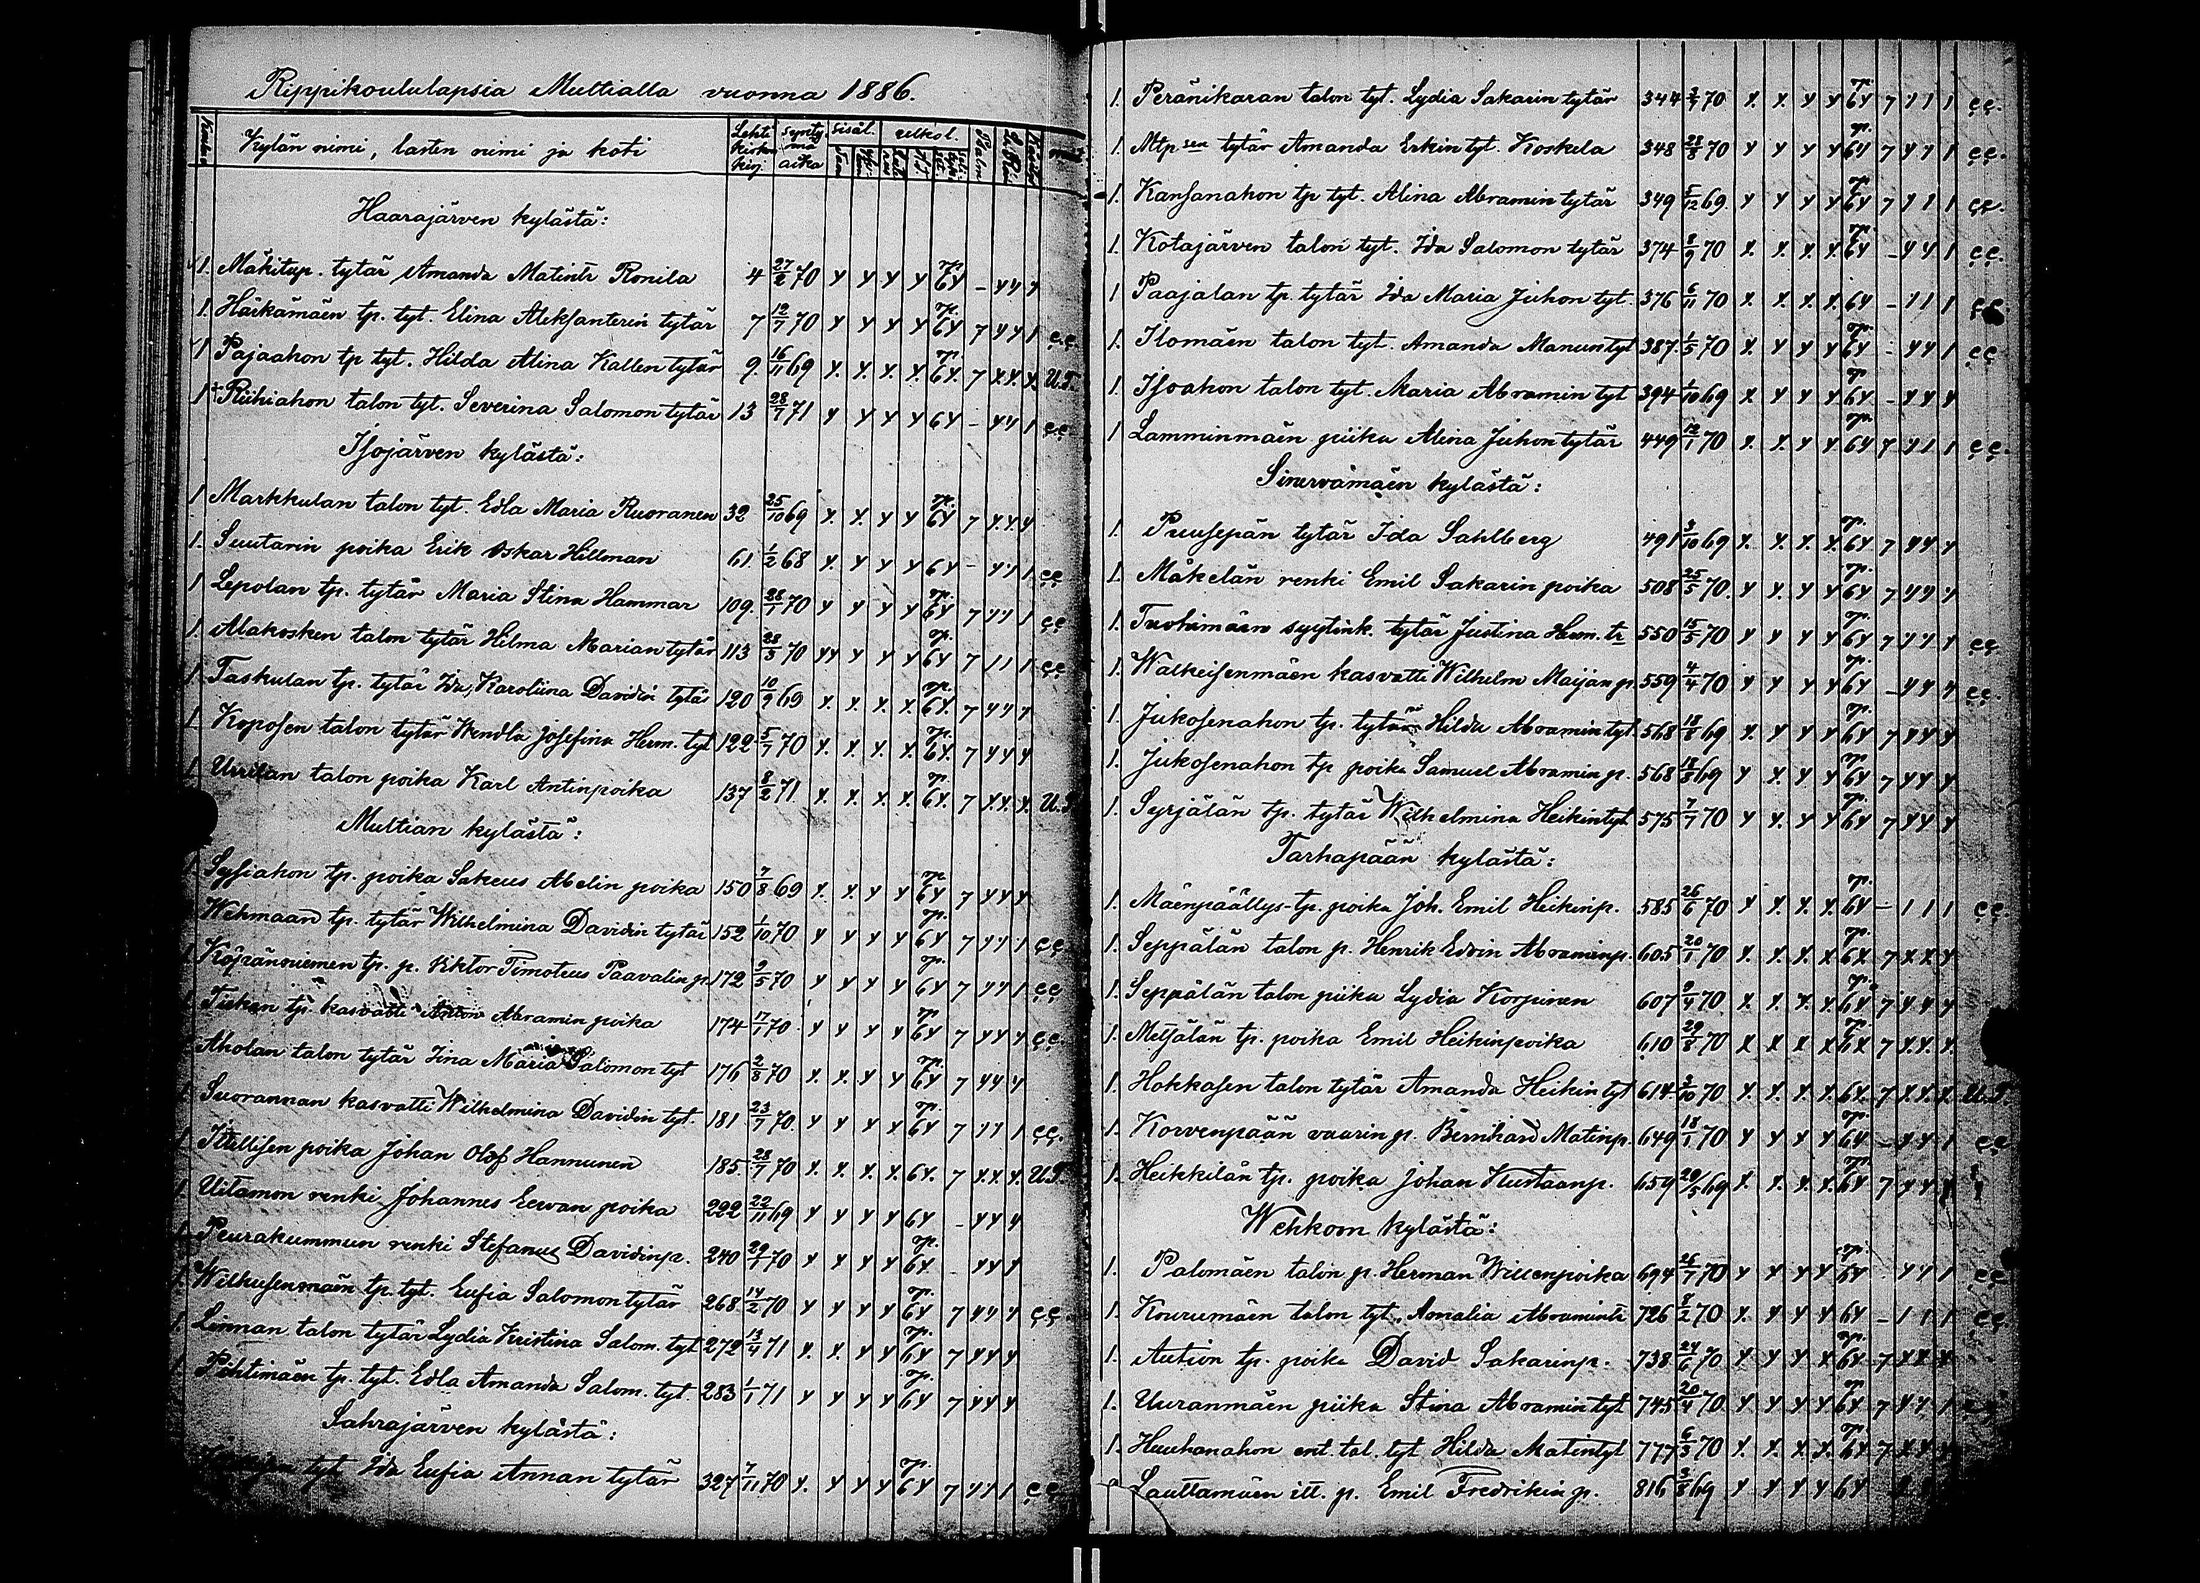 Rippikoululapsia Multialla vuonna 1886.
Kylän nimi, lasten nimi ja koti Lehti kirkon kirj. synty mä aika sisäl. selkol.
Haarajärven kylästä:
1. Mäkitup. tytär Amanda Matintr Ronila 4 27/2 70 y y y y op. 6y - y y y
1. Häkämäen tp. tyt. Elina Aleksanterin tytär 7 12/7 70 y y y y op. 6y 7 y y 1 ç.ç.
1 Pajaahon tp tyt. Hilda Alina Kallen tytär 9. 16/11 69 y. y. y. y. op. 6y. 7 y. y. y. U.T.
1 Riihiahon talon tyt. Severina Salomon tytär 13 28/7 71 y y y y 6y - y y 1 ç.ç.
Isojärven kylästä:
1 Markkulan talon tyt. Edla Maria Ruoranen 32 25/10 69 y. y. y y op. 6y 7 y. y. y
1. Suutarin poika Erik Oskar Hillman 61 1/2 68 y. y y y 6y - y y 1 çç
1 Lepolan tp. tytär Maria Stina Hammar 109. 28/1 70 y y y y op. 6y 7 y y 1 çç
1. Alakosken talon tytär Hilma Marian tytär 113 28/3 70 yy y y y op. 6y 7 1 1 1 çç
1. Taskulan tp. tytär Ida Karoliina Davidin tytär 120 10/9 69 y. y. y. y. op. 6y. 7 y y y
1. Koposen talon tytär Wendla Josefina Herm. tyt 122 5/7 70 y. y. y. y. op. 6y. 7 y y y
1 Uutelan talon poika Karl Antinpoika 137 8/2 71 y. y. y. y. op. 6y. 7 y. y. y. U.T.
Multian kylästä:
1 Sysiahon tp. poika Sakeus Abelin poika 150 7/8 69 y. y. y y op. 6y 7 y y y
1 Wehmaan tp. tytär Wilhelmina Davidin tytär 152 1/10 70 y y y y op. 6y 7 y y 1 çç.
1 Köpränniemen tp. p. Viktor Timoteus Paavalin p. 172 9/5 70 y y y y op. 6y 7 y y 1 çç
1 kasvatti Anton Abramin poika 174 17/1 70 y y y y op 6y 7 y y y çç.
Aholan talon tytär Iina Maria Salomon tyt 176 2/8 70 y. y. y y op. 6y 7 y y y
1. Suorannan kasvatti Wilhelmina Davidin tyt. 181 23/7 70. y y y y op. 6y 7 1 1 1 çç.
1. Itsellisen poika Johan Olof Hannunen 185. 28/7 70 y. y. y. y. 6y. 7 y. y. y. U.T.
1. Uitamon renki Johannes Eewan poika 222 22/11 69 y y y y 6y - y y y
1. Peurakummun renki Stefanus Davidinp. 240 29/1 70 y y y y op. 6y - y y y
1. Wilhusenmäen tp. tyt. Eufia Salomon tytär 268 14/2 70 y y y y op. 6y 7 y y y ç.ç.
1. Linnan talon tytär Lydia Kristina Salom. tyt 272 13/4 71 y. y. y y op. 6y 7 y y y
1. Pihtimäen tp. tyt. Edla Amanda Salom. tyt. 283 1/1 71 y y y y op. 6y 7 y y y
Sahrajärven kylästä:
tyt Ida Eufia Annan tytär 327 7/11 70 y. y y y op. 6y 7 y y 1 çç
1. Peränikaran talon tyt. Lydia Sakarin tytär 344 2/7 70 y. y. y y op. 6y 7 1 1 1 çç.
1. Mtp sen tytär Amanda Erkin tyt. Koskela 348 28/8 70 y y y y op. 6y 7 y y 1 çç.
1. Kansanahon tp tyt. Alina Abramin tytär 349 5/12 69. y y y y op 6y 7 1 1 1 çç.
1. Kotajärven talon tyt. Ida Salomon tytär 374 8/9 70 y. y. y. y. op 6y - y y 1 çç.
1 Paajalan tp. tytär Ida Maria Juhon tyt. 376 6/11 70 y. y. y. y. 6y - 1 1 1
1. Ilomäen talon tyt. Amanda Manun tyt 387. 1/5 70 y. y y y op. 6y - y y 1 çç
1. Isoahon talon tyt. Maria Abramin tyt 394 1/10 69 y. y y y op 6y - y y y
1 Lamminmäen piika Alina Juhon tytär 449 12/1 70 y. y. y y op. 6y 7 y 1 1 çç.
Sinervämäen kylästä:
1. Puusepän tytär Ida Sahlberg 491 3/10 69 y. y. y. y. op. 6y 7 y y y
1. Mäkelän renki Emil Sakarin poika 508 25/5 70. y y y y op. 6y 7 y y y
1. Tuohimäen syytink. tytär Justina Herm. tr 550 15/5 70 y y y y op. 6y 7 y y 1 çç.
1. Walkeisenmäen kasvatti Wilhelm Maijan p. 559 4/4 70 y y y y op. 6y - y y y çç.
1. Jukosenahon tp. tytär Hilda Abramin tyt. 568 18/8 69 y. y y y op. 6y 7 y y y
1. Jukosenahon tp poika Samuel Abramin p. 568 18/8 69 y y. y y op 6y 7 y y y
1. Syrjälän tp. tytär Wilhelmina Heikin tyt 575 7/7 70 y y. y y op. 6y 7 y y y
Tarhapään kylästä:
1. Mäenpäällys tp. poika Joh. Emil Heikinp. 585 26/6 70 y y. y. y. op. 6y - 1 1 1 çç.
1. Seppälän talon p. Henrik Edvin Abraminp. 605 20/1 70 y. y. y. y. op. 6y. 7 y. y. y
1. Seppälän talon piika Lydia Korpinen 607 9/4 70. y. y. y. y. op. 6y. 7 y. y. y
1. Metsälän tp. poika Emil Heikinpoika 610 29/8 70 y. y. y. y. op. 6y. 7 y. y. y.
1. Hokkasen talon tytär Amanda Heikin tyt 614 3/10 70 y. y. y. y. 6y. 7 y. y. y. U.T.
1. Korvenpään vaarin p. Bernhard Matinp. 649 18/1 70 y y y y op. 6y - y y 1 çç
1. Heikkilän tp. poika Johan Kustaanp. 659 20/5 69 y. y. y. y. op. 6y 7 y y
Wehkoon kylästä:
1. Palomäen talon p. Herman Willenpoika 694 26/7 70 y y y y op. 6y - y y 1 çç
1. Kourumäen talon tyt. Amalia Abramintr 726 8/2 70. y. y y y 6y - 1 1 1 çç
1. Aution tp. poika David Sakarinp. 738 24/6 70 y. y y y. op. 6y. 7 y. y. y.
1. Uuranmäen piika Stina Abramin tyt 745 20/4 70. y. y. y y op. 6y 7 y y 1
1. Huuhanahon ent. tal. tyt Hilda Matintyt 777 6/3 70 y. y. y. y. op. 6y 7 y. y. y
Lauttamäen itt. p. Emil Fredrikin p. 816 3/8 69 y y y y 6y